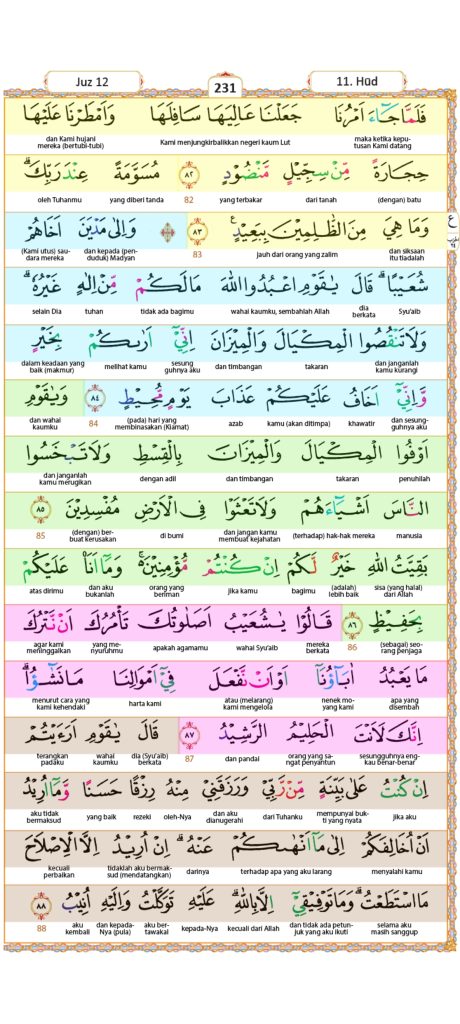 Juz 12
231
11. Hūd
فَلَمَّا جَاۤءَ اَمْرُنَا جَعَلْنَا عَالِيَهَا سَافِلَهَا وَاَمْطَرْنَا عَلَيْهَا
maka ketika kepu-tusan Kami datang Kami menjungkirbalikkan negeri kaum Lut dan Kami hujani mereka (bertubi-tubi)
حِجَارَةً مِّنْ سِجِّيْلٍ مَّنْضُوْدٍ ۝٨٢ مُسَوَّمَةً عِنْدَ رَبِّكَۗ
(dengan) batu dari tanah yang terbakar 82 yang diberi tanda oleh Tuhanmu
وَمَا هِيَ مِنَ الظّٰلِمِيْنَ بِبَعِيْدٍ ۝٨٣ وَاِلٰى مَدْيَنَ اَخَاهُمْ
ع
dan siksaan itu tiadalah jauh dari orang yang zalim 83 dan kepada (pen-duduk) Madyan (Kami utus) sau-dara mereka
شُعَيْبًاۗ قَالَ يٰقَوْمِ اعْبُدُوا اللّٰهَ مَا لَكُمْ مِّنْ اِلٰهٍ غَيْرُهٗۗ
Syu'aib dia berkata wahai kaumku, sembahlah Allah tidak ada bagimu tuhan selain Dia
وَلَا تَنْقُصُوا الْمِكْيَالَ وَالْمِيْزَانَ اِنِّيْٓ اَرٰىكُمْ بِخَيْرٍ
dan janganlah kamu kurangi takaran dan timbangan sesung guhnya aku melihat kamu dalam keadaan yang baik (makmur)
وَّاِنِّيْٓ اَخَافُ عَلَيْكُمْ عَذَابَ يَوْمٍ مُّحِيْطٍ ۝٨٤ وَيٰقَوْمِ
dan sesung-guhnya aku khawatir kamu (akan ditimpa) azab (pada) hari yang membinasakan (Kiamat) 84 dan wahai kaumku
اَوْفُوا الْمِكْيَالَ وَالْمِيْزَانَ بِالْقِسْطِ وَلَا تَبْخَسُوا
penuhilah takaran dan timbangan dengan adil dan janganlah kamu merugikan
النَّاسَ اَشْيَاۤءَهُمْ وَلَا تَعْثَوْا فِى الْاَرْضِ مُفْسِدِيْنَ ۝٨٥
manusia (terhadap) hak-hak mereka dan jangan kamu membuat kejahatan di bumi (dengan) ber-buat kerusakan 85
بَقِيَّتُ اللّٰهِ خَيْرٌ لَّكُمْ اِنْ كُنْتُمْ مُّؤْمِنِيْنَۚ وَمَآ اَنَا۠ عَلَيْكُمْ
sisa (yang halal) dari Allah (adalah) lebih baik bagimu jika kamu orang yang beriman dan aku bukanlah atas dirimu
بِحَفِيْظٍ ۝٨٦ قَالُوْا يٰشُعَيْبُ اَصَلٰوتُكَ تَأْمُرُكَ اَنْ نَّتْرُكَ
(sebagai) seo-rang penjaga 86 mereka berkata wahai Syu'aib apakah agamamu yang me-nyuruhmu agar kami meninggalkan
مَا يَعْبُدُ اٰبَاۤؤُنَآ اَوْ اَنْ نَّفْعَلَ فِيْٓ اَمْوَالِنَا مَا نَشٰۤؤُا
apa yang disembah nenek mo-yang kami atau (melarang) kami mengelola harta kami menurut cara yang kami kehendaki
اِنَّكَ لَاَنْتَ الْحَلِيْمُ الرَّشِيْدُ ۝٨٧ قَالَ يٰقَوْمِ اَرَءَيْتُمْ
sesungguhnya eng-kau benar-benar orang yang sa-ngat penyantun dan pandai 87 dia (Syu'aib) berkata wahai kaumku terangkan padaku
اِنْ كُنْتُ عَلٰى بَيِّنَةٍ مِّنْ رَّبِّيْ وَرَزَقَنِيْ مِنْهُ رِزْقًا حَسَنًا وَّمَآ اُرِيْدُ
jika aku mempunyai buk-ti yang nyata dari Tuhanku dan aku dianugerahi oleh-Nya rezeki yang baik aku tidak bermaksud
اَنْ اُخَالِفَكُمْ اِلٰى مَآ اَنْهٰىكُمْ عَنْهُۗ اِنْ اُرِيْدُ اِلَّا الْاِصْلَاحَ
menyalahi kamu terhadap apa yang aku larang darinya tidaklah aku bermak-sud (mendatangkan) kecuali perbaikan
مَا اسْتَطَعْتُۗ وَمَا تَوْفِيْقِيْٓ اِلَّا بِاللّٰهِۗ عَلَيْهِ تَوَكَّلْتُ وَاِلَيْهِ اُنِيْبُ ۝٨٨
selama aku masih sanggup dan tidak ada petun-juk yang aku ikuti kecuali dari Allah kepada-Nya aku ber-tawakal dan kepada-Nya (pula) aku kembali 88